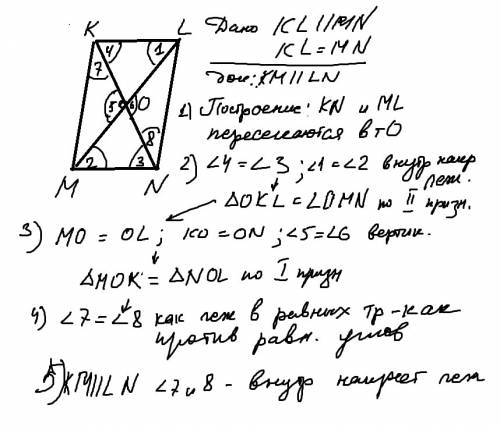 K L Дано KL||MN
KL = MN
Док: KM||LN
4 1
7
5 6 O
8
2 3
M N
1) Построение: KN и ML
пересекаются в т O
2) ∠4 = ∠3 ; ∠1 = ∠2 внутр накр
леж.
ΔOKL = ∠OMN по II призн.
3) MO = OL ; KO = ON ; ∠5 = ∠6 вертик.
ΔMOK = ΔNOL по I призн
4) ∠7 = ∠8 как леж в равных тр-ках
против равн. углов
5) KM||LN ∠7 и 8 - внутр накрест леж